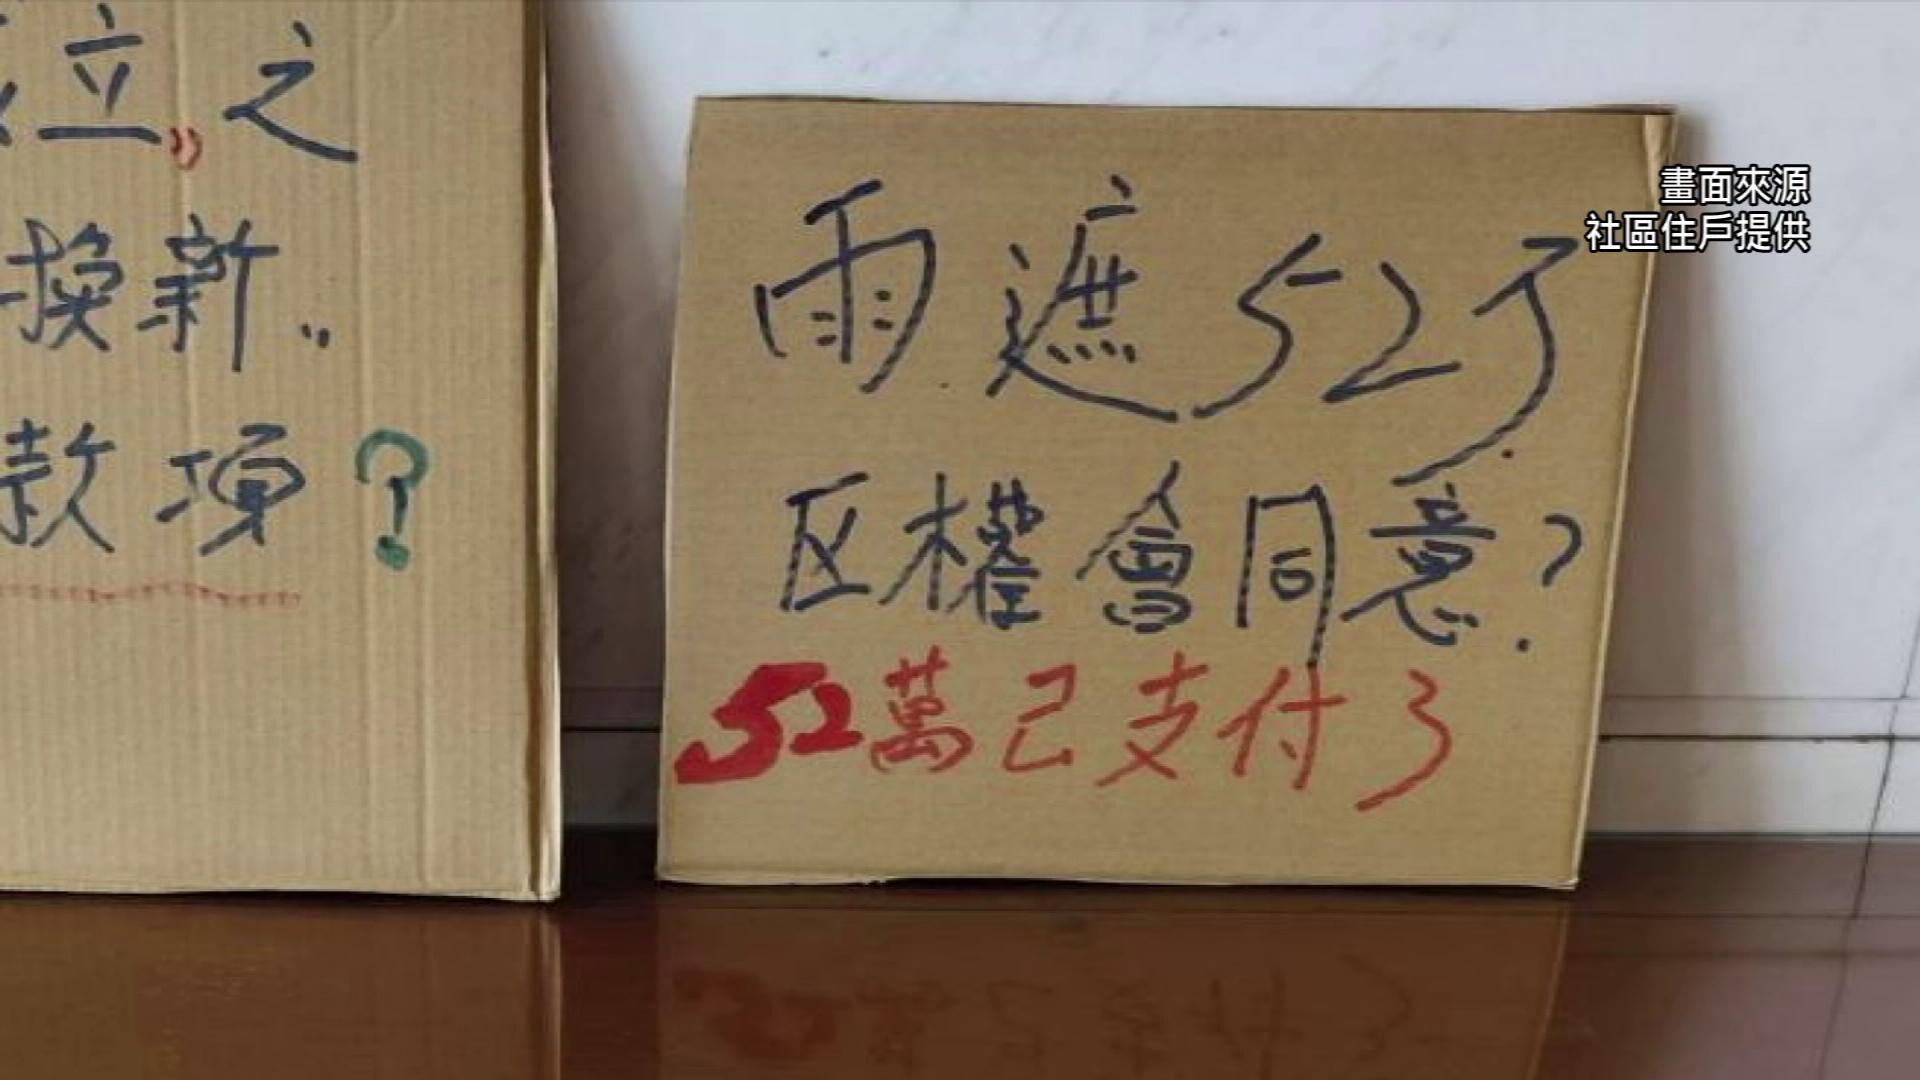 立之
換新..
款項?
雨遮52
区權會同意?
52萬已支付了
畫面來源
社區住戶提供